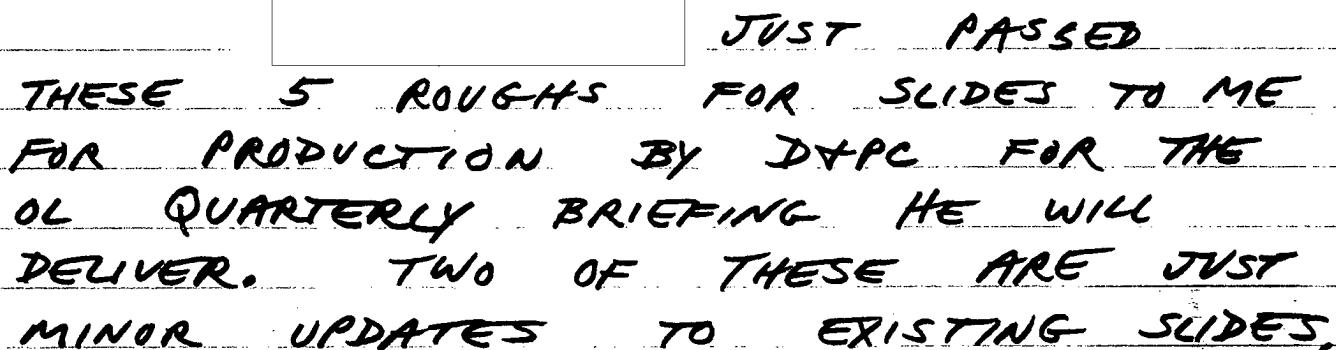 JUST PASSED
THESE 5 ROUGHS FOR SLIDES TO ME
FOR PRODUCTION BY D&PC FOR THE
OL QUARTERLY BRIEFING HE WILL
DELIVER. TWO OF THESE ARE JUST
MINOR UPDATES TO EXISTING SLIDES.